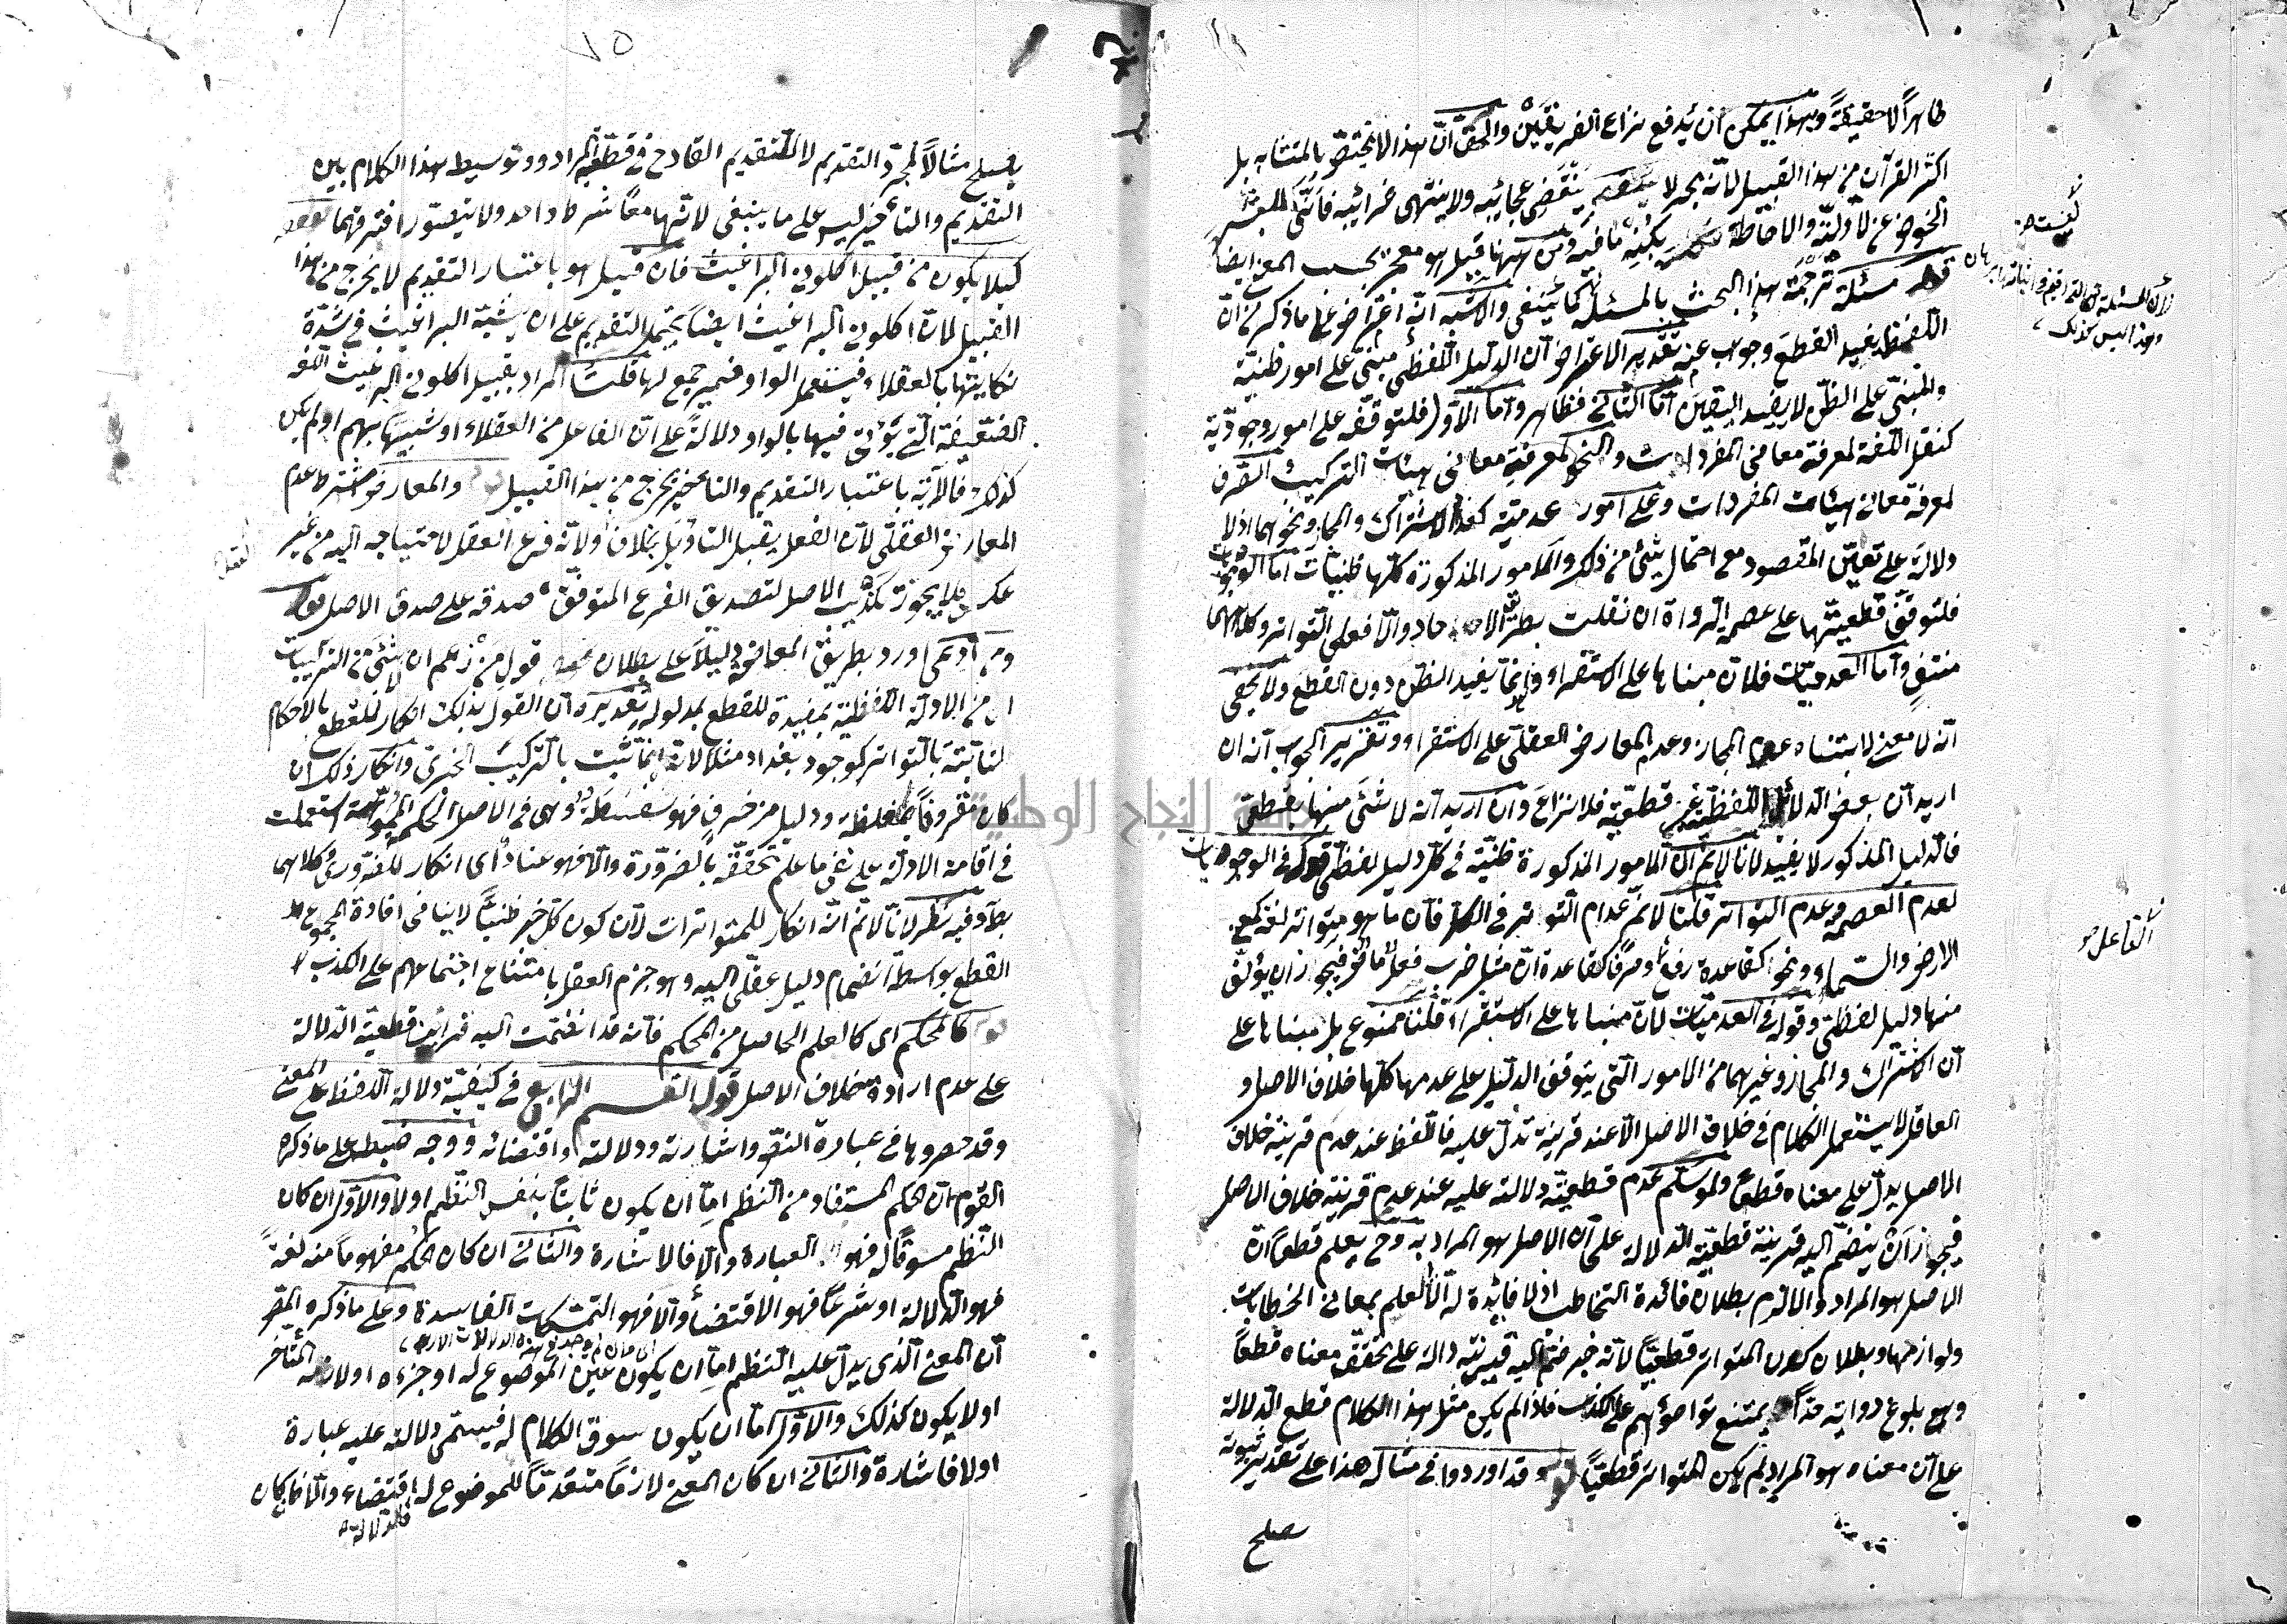 ظاهراً لا حقيقةً وبهذا يمكن ان يُدفع نزاع الفريقَيْن والحق انّ هذا لا يختص بالمتشابه بل
اكثر القرآن من هذا القبيل لانه بحر لا ينقضى عجائبه ولا ينتهى غرائبه فانّى للبشر
الخوض على لآ والاحاطة بكنه ما فيه ومن ههنا قيل هو معجز بحسب المعنى ايضا
قوله مسئلة ترجمة هذا البحث بالمسئلة كما ينبغى والاشبه انّه اعتراض على ما ذكر من ان
اللفظ يفيد القطع وجواب عنه تقدير الاعتراض ان الدليل اللفظى مبنى على امور ظنية
والمبنى على الظنّ لا يفيد اليقين اما الثانى فظاهر واما الاول فلتوقفه على امور وجوديّة
كنقل اللغة لمعرفة معانى المفردات والنحو لمعرفة معانى هيئات التركيب والصرف
لمعرفة معانى هيئات المفردات وعلى امور عدميّة كعدم الاشتراك والمجاز ونحوهما اذ لا
دلالة على تعين المقصود مع احتمال شئ من ذلك والامور المذكورة كلها ظنيات اما الوجوديات
فلتوقف قطعيتها على عصمة الرواة ان نقلت بطريق الاحاد والّا فعلى التواتر وكلاهما
منتفٍ واما العدميات فلان مبناها على الاستقراء وانما يفيد الظن دون القطع ولا يخفى
انه لا معنى لابتناء عدم المجاز وعدم المعارض العقلى على الاستقراء وتقرير الجواب انه ان
اريد ان بعض الدلائل اللفظية غير قطعيّة فلا نزاع وان اريد انه لا شئ منها بقطعى
فالدليل المذكور لا يفيد لانا لا نم ان الامور المذكورة ظنيّة فى كل دليل لفظى قوله فى الوجوديات
لعدم العصمة وعدم التواتر قلنا لا نم عدم التواتر فى الكل فان ما هو متواتر لغة كمعنى
الارض والسّماء ونحوا كقاعدة رفع وصرفا كقاعدة ان مثل ضرب فعل ماض فيجوز ان يؤلف
منها دليل لفظى وقوله وفى العدميّات لان مبناها على الاستقراء قلنا ممنوع بل مبناها على
ان الاشتراك والمجاز وغيرهما من الامور التى يتوقف الدليل على عدمها كلها خلاف الاصل و
العاقل لا يستعمل الكلام فى خلاف الاصل الّا عند قرينة تدل عليه فاللفظ عند عدم قرينة خلاف
الاصل يدل على معناه قطعا ولو سلم عدم قطعيّة دلالته عليه عند عدم قرينة خلاف الاصل
فيجوز ان ينضم اليه قرينة قطعيّة الدلالة على ان الاصل هو المراد به وح يعلم قطعا ان
الاصل هو المراد والا لزم بطلان فائدة التخاطب اذ لا فائدة له الّا العلم بمعانى الخطابات
ولوازمها وبطلان كون المتواتر قطعيّا لانه خبر ضم اليه قرينة دالة على تحقق معناه قطعاً
وهى بلوغ رواته حدا يمتنع تواطؤهم على الكذب فاذا لم يكن مثل هذا الكلام قطعى الدلالة
على ان معناه هو المراد لم يكن المتواتر قطعيّاً قوله وقد اوردوا فى مثاله هذا على تقدير ثبوته
يصلح
الفاعل
٧٥
يصلح مثالاً لمجرّد التقديم لا للتقديم القادح فى قطعيّة المراد وتوسيط هذا الكلام بين
التقديم والتأخير ليس على ما ينبغى لانهما معاً شرط واحد ولا يتصور افتراقهما قوله
كيلا يكون من قبيل اكلونى البراغيث فان قيل هو باعتبار التقديم لا يخرج من هذا
القبيل لان اكلونى البراغيث ايضا يحتمل التقديم على ان يشبّه البراغيث فى شدّة
نكايتها بالعقلاء فيستعمل الواو ضمير جمع لها قلت المراد بقبيل اكلونى البراغيث اللغة
الضعيفة التى يؤتى فيها بالواو دلالة على ان الفاعل من العقلاء او شبيها بهم او لم يكن
كذلك فالآية باعتبار التقديم والتأخير يخرج من هذا القبيل والمعارض اشترط عدم
المعارض العقلى لان الفعل يقبل التأويل بخلافه ولانه فرع العقل لاحتياجه اليه من غير
عكس فلا يجوز تكذيب الاصل لتصديق الفرع المتوقف صدقه على صدق الاصل قوله
ومن ادعى اورد بطريق المعارضة دليلاً على بطلان قول من زعم ان لا شئ من التركيبات
اى من الادلة اللفظية بمفيدة للقطع بمدلوله تقديره ان القول بذلك انكار للقطع بالاحكام
الثابتة بالتواتر كوجود بغداد مثلا لانه انما ثبت بالتركيب الخبرى وانكار ذلك ان
كان مقرونا بمغلظة ودليل مزخرف فهو سفسطة وهى فى الاصل الحكمة المموّهة استعملت
فى اقامة الادلة على نفى ما علم تحققه بالضرورة والّا فهو عناد اى انكار للضرورى وكلاهما
بط وفيه نظر لانا لا نم انّه انكار للمتواترات لان كون كل خبر ظنيّاً لا ينافى افادة المجموع
القطع بواسطة انضمام دليل عقلى اليه وهو جزم العقل بامتناع اجتماعهم على الكذب
قوله كالمحكم اى كالعلم الحاصل من المحكم فانه قد انضمت اليه قرائن قطعيّة الدلالة
على عدم ارادة خلاف الاصل قوله التقسيم الرابع فى كيفيّة دلالة اللفظ على المعنى
وقد حصروها فى عبارة النص واشارته ودلالته واقتضائه ووجه ضبطه على ما ذكره
القوم ان الحكم المستفاد من النظم اما ان يكون ثابتاً بنفس النظم او لا والاول ان كان
النظم مسوقا له فهو العبارة والا فالاشارة والثانى ان كان الحكم مفهوماً منه لغةً
فهو الدلالة او شرعاً فهو الاقتضاء والا فهو التمسكات الفاسدة وعلى ما ذكره المص
ان المعنى الّذى يدل عليه النظم اما ان يكون عين الموضوع له او جزءه او لازمه المتأخر
او لا يكون كذلك والاول اما ان يكون سوق الكلام له فيسمى دلالته عليه عبارة
او لا فاشارة والثانى ان كان المعنى لازماً متقدماً للموضوع له فاقتضاء والا فان كان
فالدلالة
جامعة النجاح الوطنية